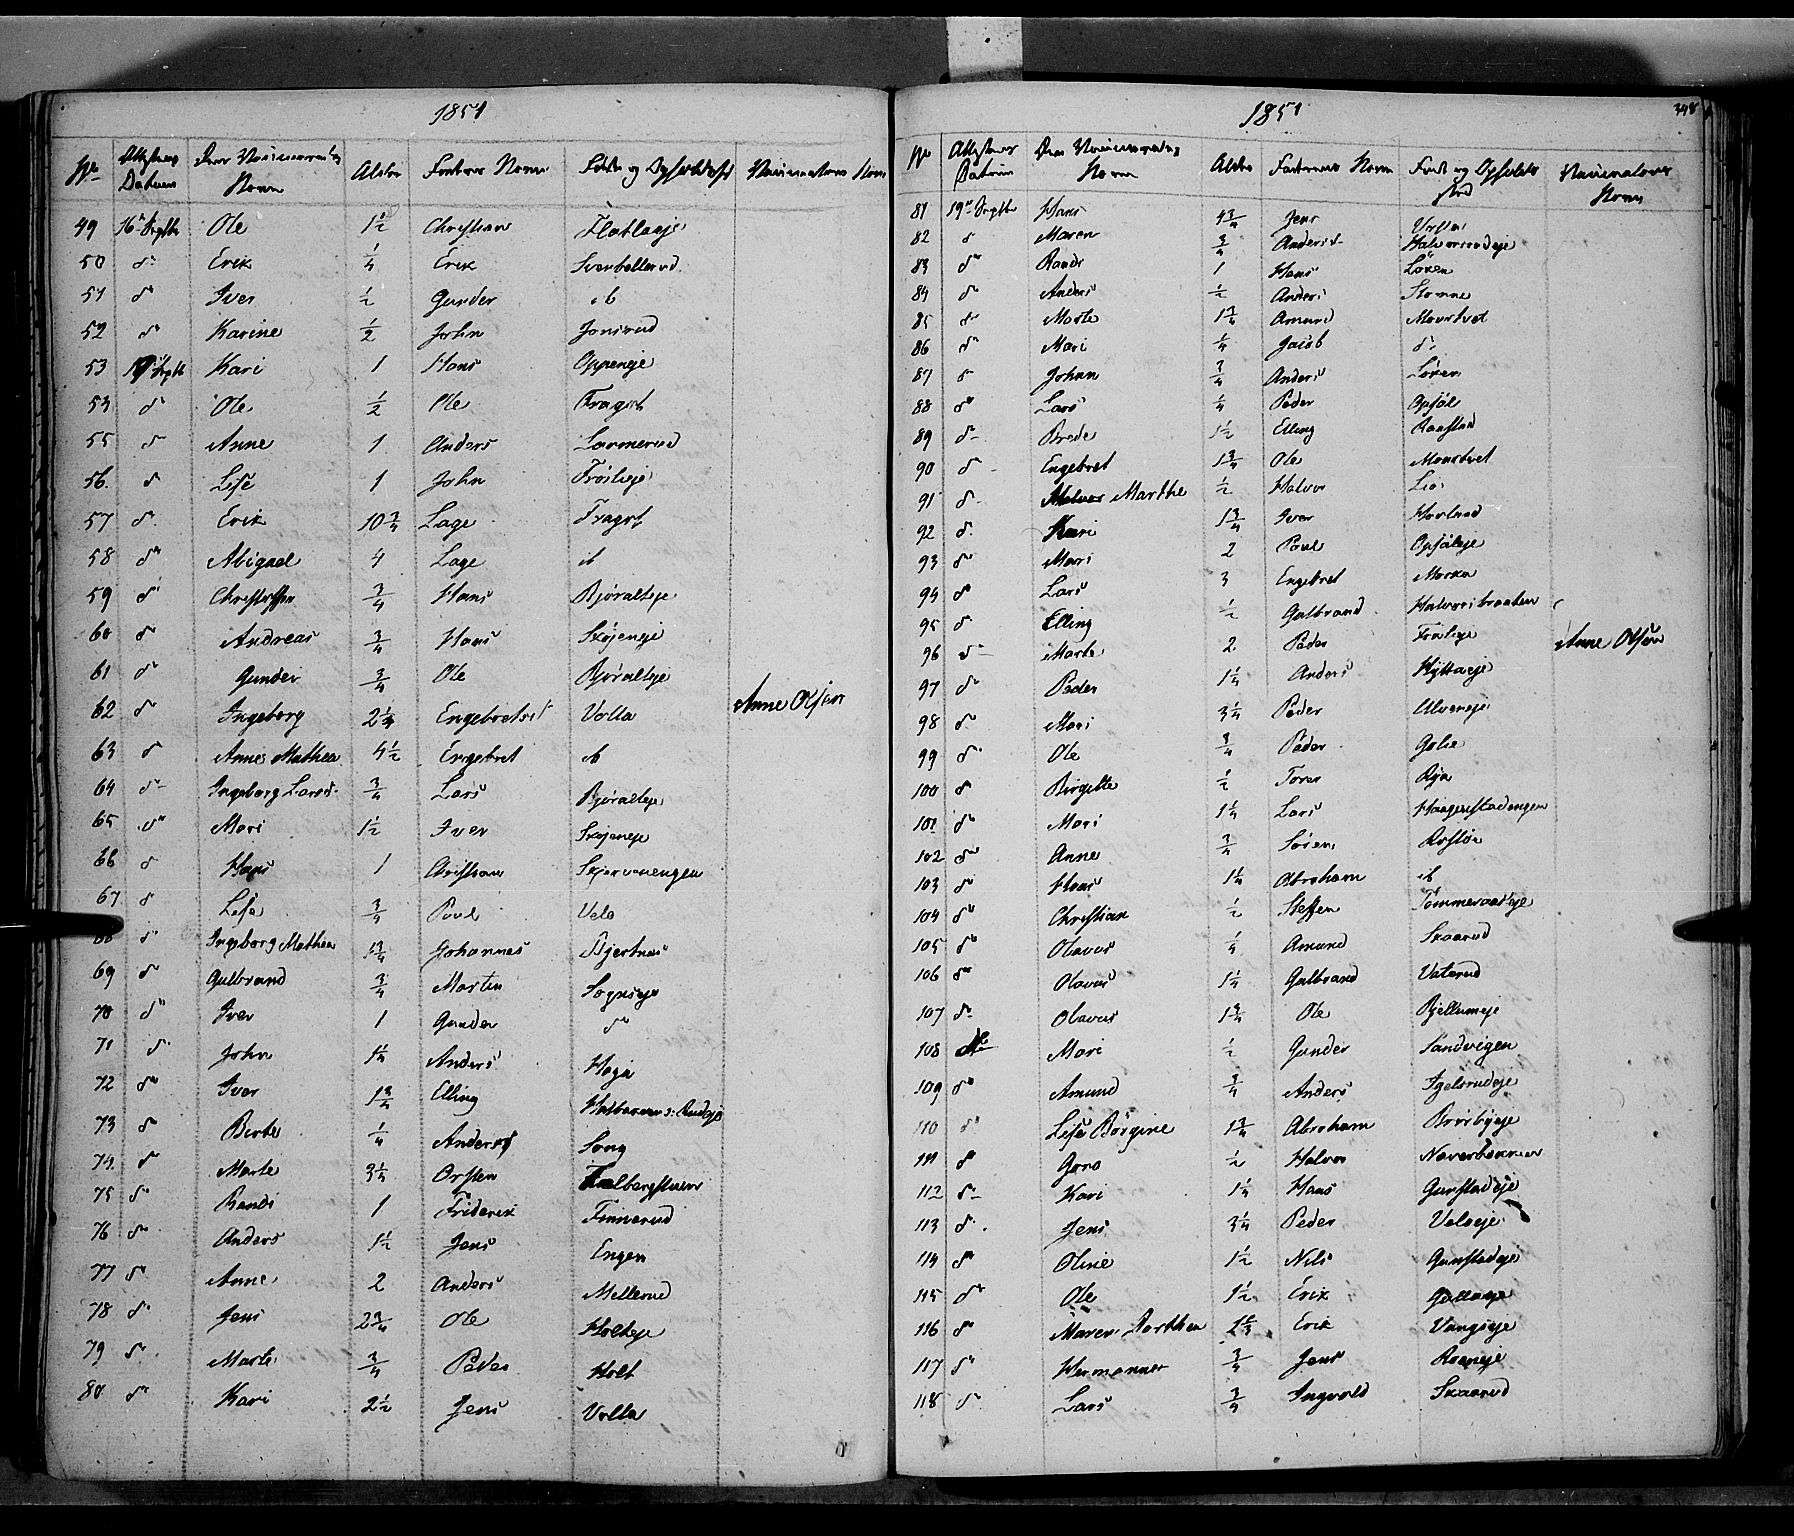 1851
No Attestens Datum Den Vaccineredes Navn Alder Faderens Navn Føde og Opholdssted Vaccinatorens Navn
49 16 Septbr Ole 1½ Christian Flatlaeje
50 do Erik ¼ Erik Svenbellerud
51 do Iver ½ Gunder ib
52 do Karine ½ John Jonsrud
53 19 Septb Kari 1 Hans Oppeneje
54 do Ole ½ Ole Fragot
55 do Anne 1 Anders Lammerud
56 do Lise 1 John Frøileje
57 do Erik 10¾ Lage Fragot
58 do Abigael 4 Lage ib
59 do Christoffer ¾ Hans Bjøralteje
60 do Andreas ¾ Hans Skøjeneje
61 do Gunder ¾ Ole Bjøralteje
62 do Ingeborg 2¼ Engebretsd Volla Anne Olsen
63 do Anne Mathea 4½ Engebret ib
64 do Ingeborg Larsd ¾ Lars Bjøralteje
65 do Mari 1½ Iver Skøjeneje
66 do Hans 1 Christian Skjervenengen
67 do Lise ¾ Poul Velo
68 do Ingeborg Mathea 1¾ Johannes Bjertnes
69 do Gulbrand ¾ Martin Sogneje
70 do Iver 1 Gunder do
71 do John 1¼ Anders Haga
72 do Iver 1¾ Elling Halvorsrudeje
73 do Berte ¼ Anders Song
74 do Marte 3¼ Orsten Kolbergstuen
75 do Randi 1 Frideric Finnerud
76 do Anders 1½ Jens Engen
77 do Anne 2 Anders Mellerud
78 do Jens 2¾ Ole Holteje
79 do Marte ¾ Peder Holt
80 do Kari 2½ Jens Volla
1851
348
No Attestens Datum Den Vaccineredes Navn Alder Faderens Navn Føde og Opholdssted Vaccinatorens Navn
81 19 Septbr Hans 4¾ Jens Volla
82 do Maren ¾ Anders Halvorsrudeje
83 do Randi 1 Hans Løken
84 do Anders ½ Anders Stomne
85 do Marte 1¾ Amund Moustvet
86 do Mari ¼ Jacob do
87 do Johan ¾ Anders Løken
88 do Lars ¼ Peder Opsal
89 do Brede 1½ Elling Raastad
90 do Engebret 1¾ Ole Moustvet
91 do Marthe ½ Halvor Lie
92 do Kari 1¾ Iver Hovland
93 do Mari 2 Poul Opsaleje
94 do Lars 3 Engebret Morka
95 do Elling ½ Gulbrand Halvorsbraaten
96 do Marte 2 Peder Froleje Anne Olsen
97 do Peder 1¼ Anders Hyttaeje
98 do Mari 3¼ Peder Ulveneje
99 do Ole ¾ Peder Golie
100 do Birgitte ½ Tover Rya
101 do Mari 1¼ Lars Haagenstadengen
102 do Anne ¾ Søren Rostøe
103 do Hans 1¼ Abraham ib
104 do Christian ½ Steffen Tommeraaseje
105 do Olavus ¼ Amund Skaarud
106 do Olavus 1¼ Gulbrand Vaterud
107 do Olavus 1¾ Ole Bjellumeje
108 do Mari ½ Gunder Sandvigen
109 do Amund ¾ Anders Igelsrudeje
110 do Lise Børgine 1¾ Abraham Brørbyeje
111 do Goro ½ Halvor Naverbakken
112 do Kari 1¼ Hans Gunstadeje
113 do Jens 3¼ Peder Veloeje
114 do Oline 1½ Nils Gunstadeje
115 do Ole 1½ Erik Gollaeje
116 do Maren Dorthea Erik Vangseje
117 do Hermanna ¾ Jens Roeneje
118 do Lars ¾ Ingvold Skaarud